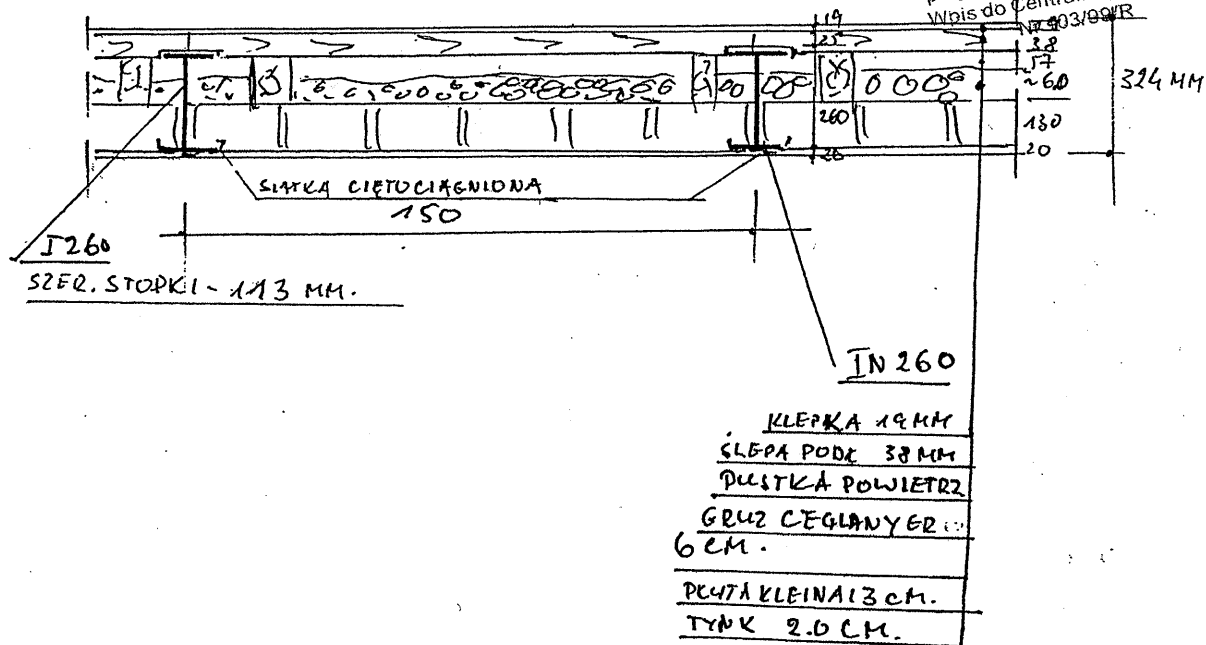 Wpis do Centraln
Nr 403/99/R
19
25
38
57
~60
324 MM
260
130
20
20
SIATKA CIĘTOCIĄGNIONA
150
I 260
SZER. STOPKI - 113 MM.
IN 260
KLEPKA 19 MM
ŚLEPA PODŁ 38 MM
PUSTKA POWIETRZ
GRUZ CEGLANY GR
6 CM.
PŁYTA KLEINA 13 CM.
TYNK 2.0 CM.